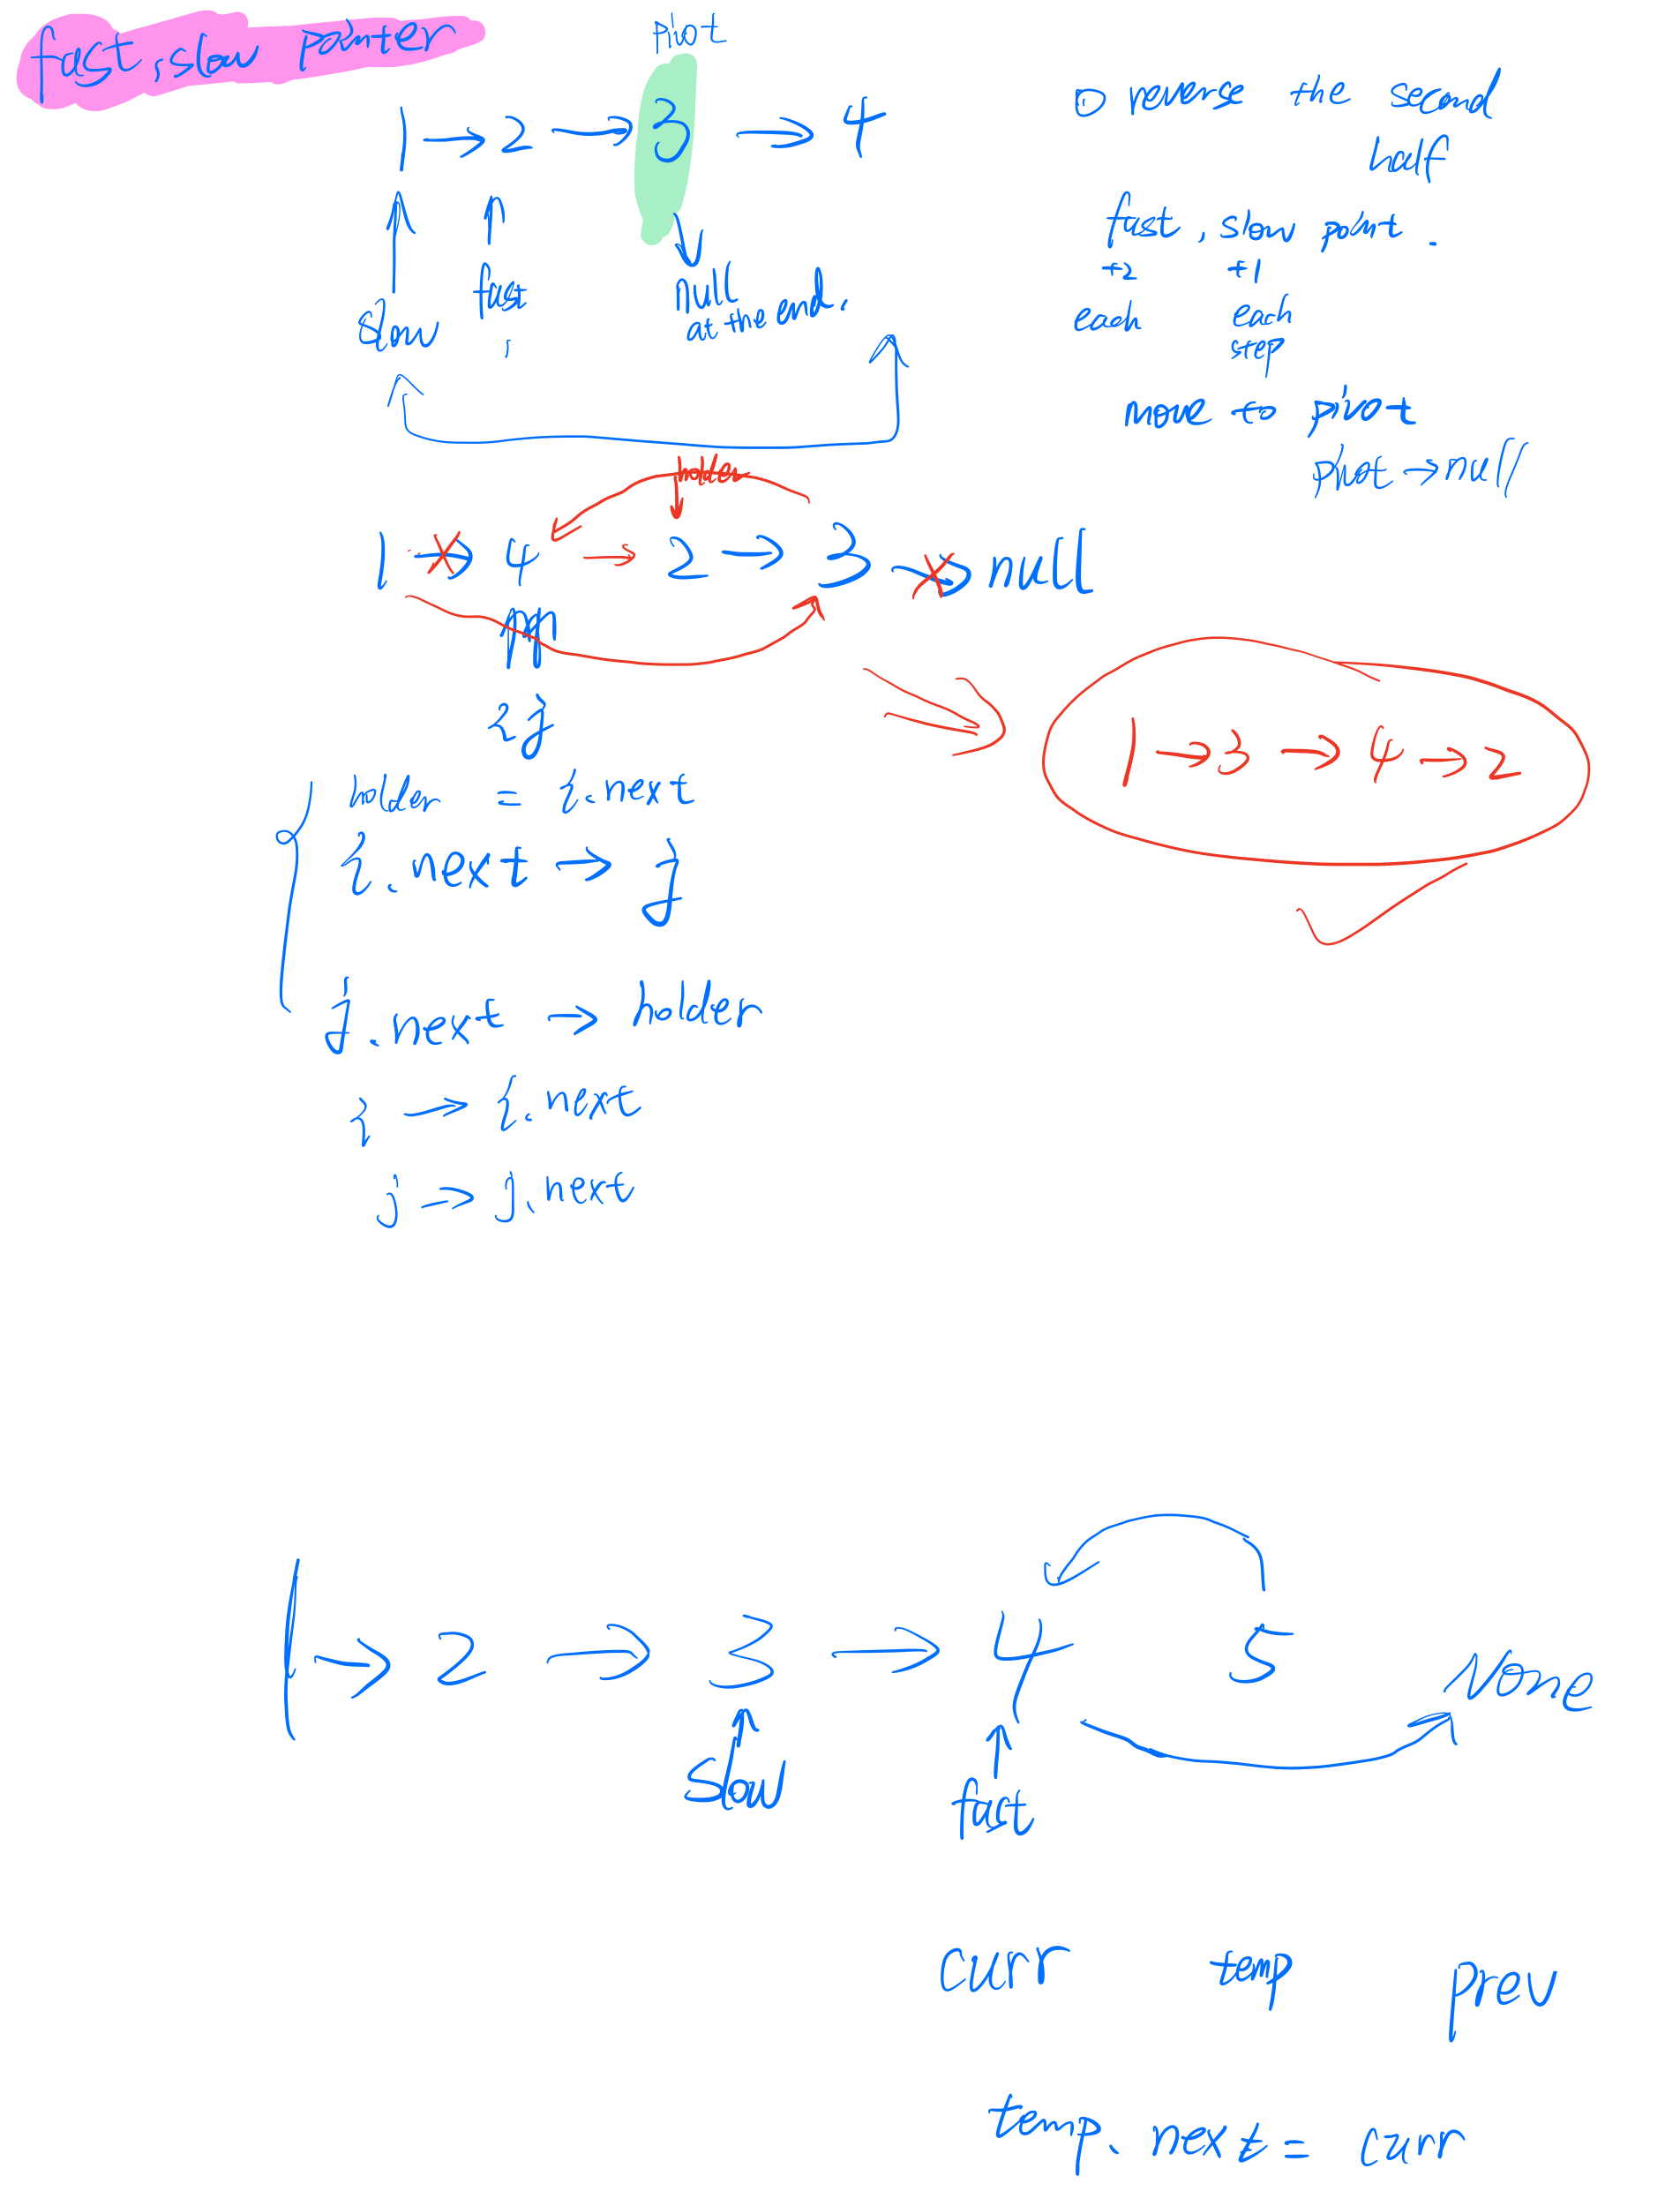 fast, slow pointer
pivot
1 → 2 → 3 → 4
slow
fast,
null
at the end.
reverse the second
half
fast, slow point.
+2 +1
each each
step
move to pivot
pivot → null
holder
1 → 4 → 2 → 3 → null
i j
1 → 3 → 4 → 2
holder = i.next
i.next → j
j.next → holder
i → i.next
j → j.next
1 → 2 → 3 → 4 5 None
slow fast
curr temp prev
temp.next = curr